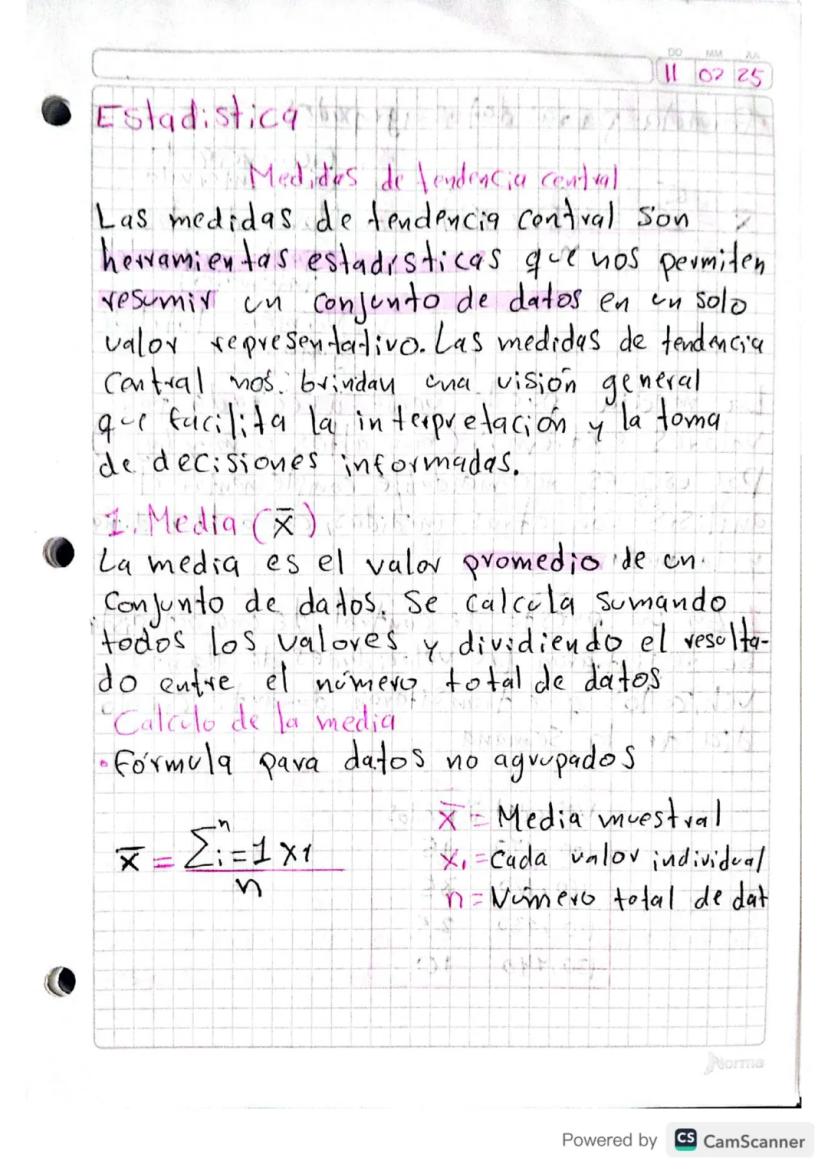 DD MM AA
11 02 25
Estadistica
Medidas de tendencia central
Las medidas de tendencia central son
herramientas estadisticas que nos permiten
resumir un conjunto de datos en un solo
valor representativo. Las medidas de tendencia
central nos brindan una visión general
que facilita la interpretación y la toma
de decisiones informadas.
1. Media (x̄)
La media es el valor promedio de un
conjunto de datos. Se calcula sumando
todos los valores y dividiendo el resulta-
do entre el número total de datos
Calculo de la media
• Fórmula para datos no agrupados
x̄ = Σⁿi=1 x1 / n
x̄ = Media muestral
x₁ = Cada valor individual
n = Número total de dat
Norma
Powered by CS CamScanner